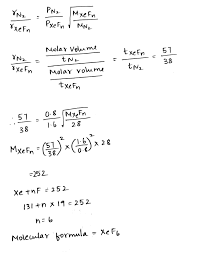 r_N₂ / r_XeFn = P_N₂ / P_XeFn √(M_XeFn / M_N₂)
r_N₂ / r_XeFn = (Molar volume / t_N₂) / (Molar volume / t_XeFn) = t_XeFn / t_N₂ = 57 / 38
∴ 57 / 38 = 0.8 / 1.6 √(M_XeFn / 28)
M_XeFn = (57 / 38)² × (1.6 / 0.8)² × 28
=252
Xe + nF = 252
131 + n × 19 = 252
n = 6
Molecular formula = XeF₆